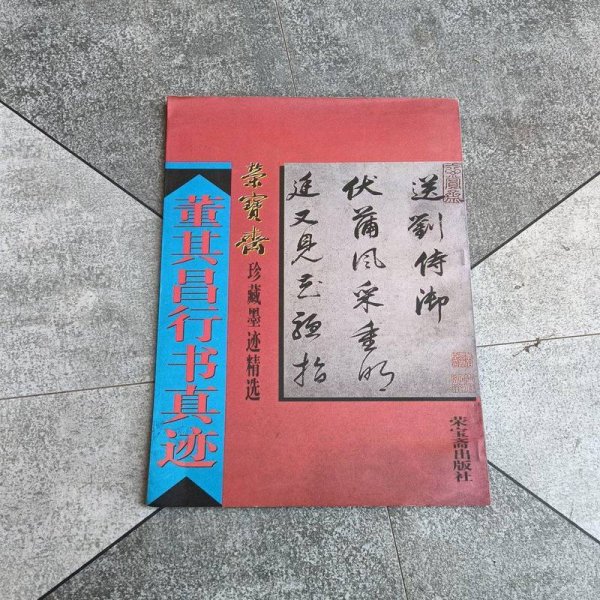 董其昌行书真迹
榮寶齋
珍藏墨迹精选
送劉侍御
伏蒲風采重明
廷又見花驄指
荣宝斋出版社